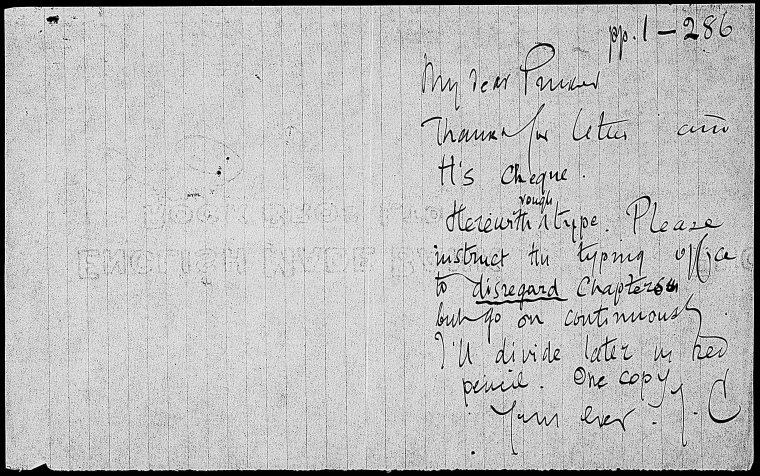 pp. 1 – 286
My dear Pinker
Thanks for letter and
H's cheque.
rough
Herewith ^ type. Please
instruct the typing office
to disregard Chapters
but go on continuously
I'll divide later in red
pencil. One copy
Yours ever. J. C
ENGLISH MADE